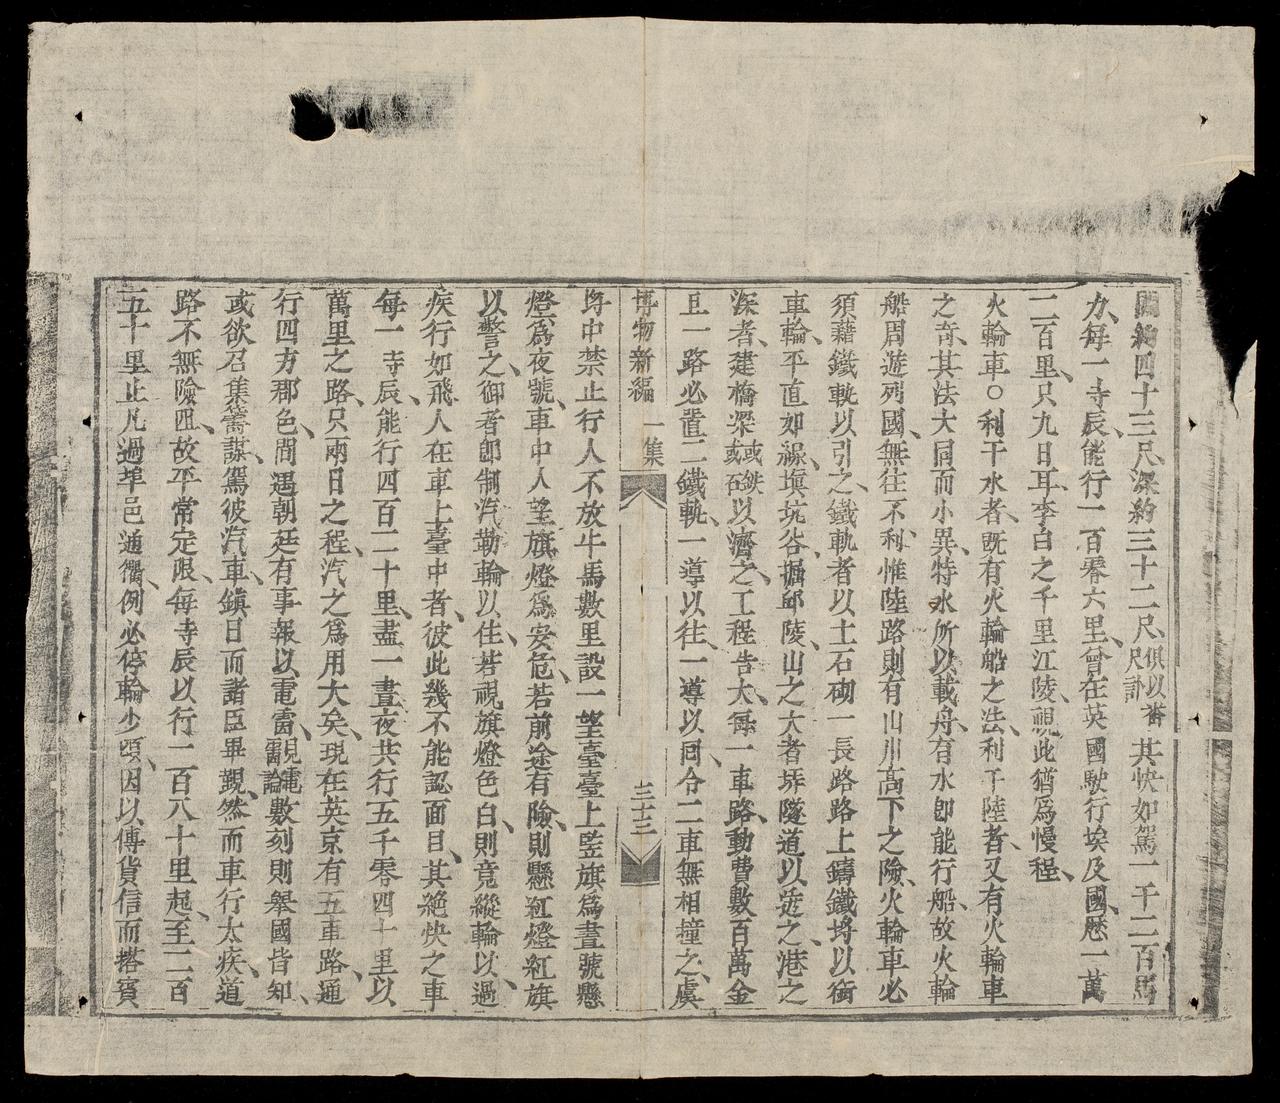 闊約四十三尺、深約三十二尺、俱以番尺計其快如駕一千二百馬
力、每一時辰、能行一百零六里、曾在英國駛行埃及國、歷一萬
二百里、只九日耳、李白之千里江陵、視此猶爲慢程、
火輪車○利于水者、既有火輪船之法、利于陸者、又有火輪車
之奇、其法大同而小異、特水所以載舟、有水卽能行船、故火輪
船周遊列國、無往不利、惟陸路則有山川高下之險、火輪車必
須藉鐵軌以引之、鐵軌者、以土石砌一長路、路上鑄鐵埒以銜
車輪、平直如線、塡坑谷、掘邱陵、山之大者、穿隧道以逆之、港之
深者、建橋梁或鉄或石以濟之、工程告大、每一車路、動費數百萬金
且一路必置二鐵軌、一導以往、一導以囘、令二車無相撞之虞
博物新編 一集 三十三
埒中禁止行人、不放牛馬、數里設一望臺、臺上竪旗爲晝號、懸
燈爲夜號、車中人望旗燈爲安危、若前途有險、則懸紅燈紅旗
以警之、御者卽制汽勒輪以住、若視旗燈色白、則竟縱輪以過
疾行如飛、人在車上臺中者、彼此幾不能認面目、其絶快之車
每一時辰、能行四百二十里、盡一晝夜、共行五千零四十里、以
萬里之路、只兩日之程、汽之爲用大矣、現在英京有五車路、通
行四方郡邑、間遇朝廷有事、報以電雷、見電雷論數刻則舉國皆知、
或欲召集籌謀、駕彼汽車、鎮日而諸臣畢覲、然而車行太疾、道
路不無險阻、故平常定限、每時辰以行一百八十里起、至二百
五十里止、凡過埠邑通衢、例必停輪少頃、因以傳貨信而搭賓